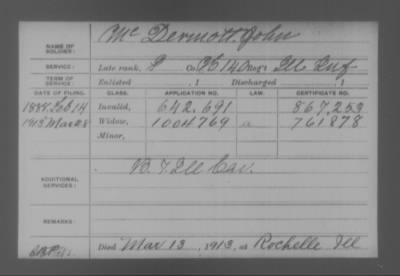 NAME OF SOLDIER: Mc Dermott John
SERVICE: Late rank, P Co. 140 Reg't Ill Inf
TERM OF SERVICE: Enlisted , 1 Discharged , 1
DATE OF FILING. CLASS. APPLICATION NO. LAW. CERTIFICATE NO.
1888 Feb 14 Invalid, 642.691 867,253
1913 Mar 28 Widow, 1004769 a 761878
Minor,
ADDITIONAL SERVICES: B. 7 Ill Cav.
REMARKS:
Died Mar 13, 1913, at Rochelle Ill